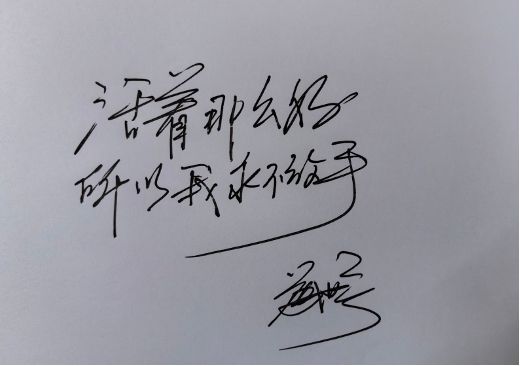 活着那么好
所以我永不放手